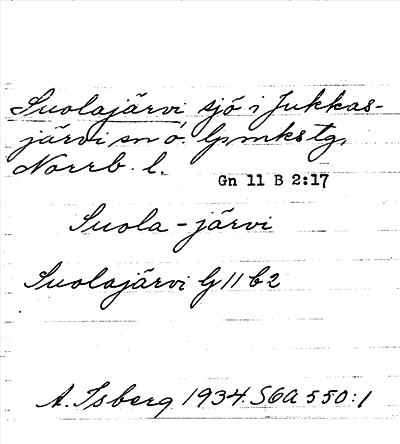 Suolajärvi, sjö i Jukkas-
järvi sn o. lpmkstg,
Norrb. l.
Gn 11 B 2:17
Suola-järvi
Suolajärvi G 11 b 2
A. Isberg 1934. S6A 550:1